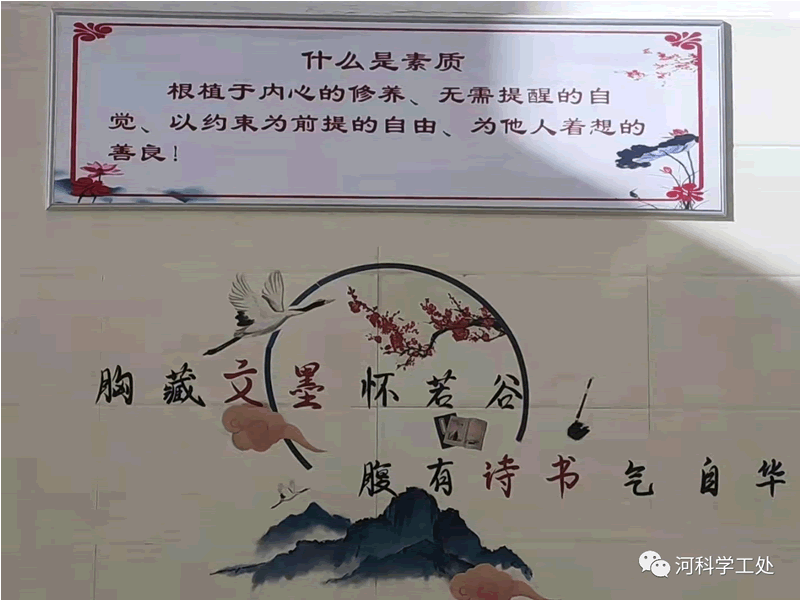 什么是素质
根植于内心的修养、无需提醒的自
觉、以约束为前提的自由、为他人着想的
善良!
胸藏文墨怀若谷
腹有诗书气自华
河科学工处